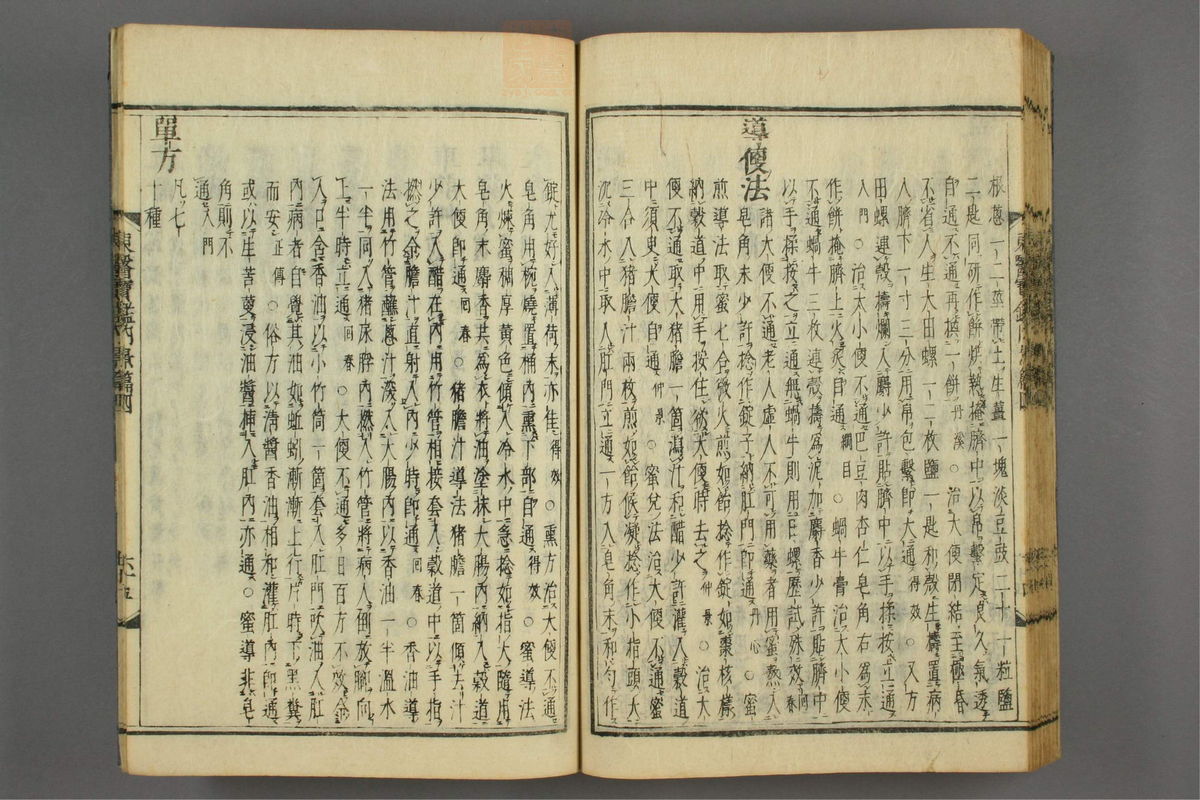 根葱一二莖帶土生薑一塊淡豆豉二十一粒鹽
二匙同研作餅烘熱掩臍中以帛繫定良久氣透
自通不通再換一餅丹溪○治大便閉結至極昏
不省人生大田螺一二枚鹽一匙和殼生擣置病
人臍下一寸三分用帛包繫即大通得效○又方
田螺連殼擣爛入麝少許貼臍中以手揉按立通
入門○治大小便不通巴豆肉杏仁皂角右爲末
作餅掩臍上火灸自通綱目○蝸牛膏治大小便
不通蝸牛三枚連殼擣爲泥加麝香少許貼臍中
以手揉按之立通無蝸牛則用田螺歷試殊效回春
導便法
諸大便不通老人虛人不可用藥者用蜜熬入
皂角末少許捻作錠子納肛門即通丹心○蜜
煎導法取蜜七合微火煎如飴捻作錠如棗核樣
納穀道中用手按住欲大便時去之仲景○治大
便不通取大猪膽一箇瀉汁和醋少許灌入穀道
中須臾大便自通仲景○蜜兌法治大便不通蜜
三合入猪膽汁兩枚煎如飴候凝捻作小指頭大
沉冷水中取入肛門立通一方入皂角末和勺作
錠尤好入薄荷末亦佳得效○熏方治大便不通
皂角用椀燒置桶內熏下部自通得效○蜜導法
火煉蜜稠厚黃色傾入冷水中急捻如指大隨用
皂角末麝香共爲衣將油塗抹大腸內納入穀道
大便即通回春○猪膽汁導法猪膽一箇傾去汁
少許入醋在內用竹管相接套入穀道中以手指
撚之令膽汁直射入內少時即通回春○香油導
法用竹管蘸葱汁深入大腸內以香油一半溫水
一半同入猪尿脬內撚入竹管將病人倒放脚向
上半時立通回春○大便不通多日百方不效令
人口含香油以小竹筒一箇套入肛門吹油入肛
內病者自覺其油如蚯蚓漸漸上行片時下黑糞
而安正傳○俗方以淸醬香油相和灌肛內即通
或以生苦蔓浸油醬揷入肛內亦通○蜜導非皂
角則不
通入門
單方
凡七
十種